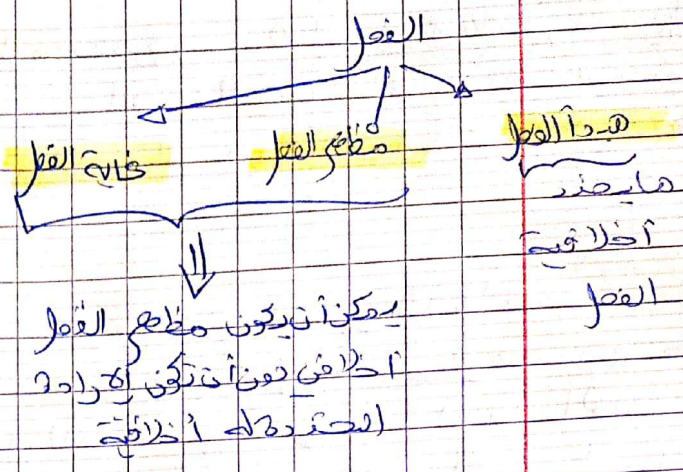 الفعل
مبدأ الفعل
مظاهر الفعل
غاية الفعل
ما يحدد
أخلاقية
الفعل
يمكن أن يكون مظاهر الفعل
أخلاقي دون أن تكون الإرادة
المحددة له أخلاقية